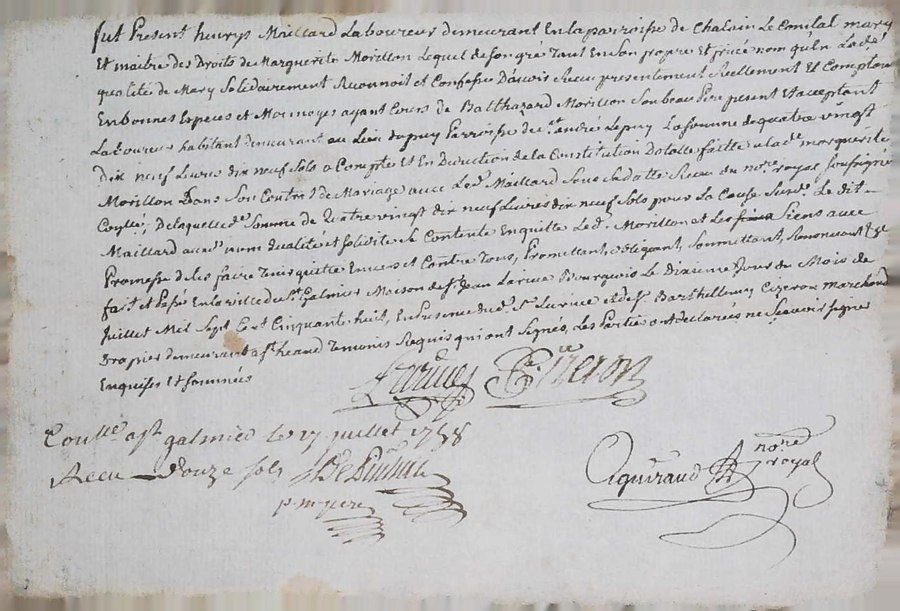 fut Present henrys Maillard Laboureur demeurant En la parroisse de Chalain Le Comtal mary
Et maitre des Droits de Marguerite Morillon Lequel de son gré tant En son propre et privé nom qu'En Ladte
qualité de Mary Solidairement Reconnoit et Confesse D'avoir Receu presentement Reellement Et Comptant
En bonnes Especes et Monnoyes ayant Cours de Balthazard Morillon Son beau Pere present Et acceptant
Laboureur habitant demeurant au Lieu du puy Parroisse de st andré Le puy La somme de quatre vingt
dix neuf Livres dix neuf Sols a Compte et En Deduction de la Constitution Dotalle faitte a lade marguerite
Morillon Dans Son Contrat de Mariage avec Led. Maillard Sous Sa datte Receu du nore royal soussigné
De laquelle de Somme de quatre vingt dix neuf Livres dix neuf Sols pour la Cause Susde Le dit
Maillard aud. nom qualité et solidité Se Contente En quitte Led. Morillon et Les Siens avec
Promesse de Les faire Tenir quitte Envers et Contre Tous, Promettant, obligeant, Soumettant, Renonceant Et
fait et Passé En la ville de st Galmier Maison de sr Jean Larive Bourgeois Le dixieme Jour du Mois de
Juillet Mil Sept Cent Cinquante huit, En presence dud. sr Larive et de sr Barthellemy Cizeron marchand
Drapier demeurant a st heand Temoins Requis qui ont Signés, Les Parties ont declarées ne Scavoir Signer
Enquises Et Sommées
Larive Cizeron
Conllé a st galmier le 17 juillet 1758
Receu Douze sols
Aguiraud nore
royal